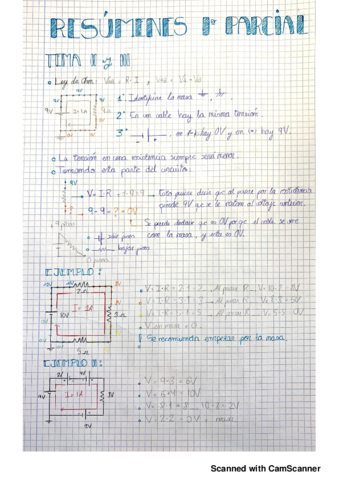 RESÚMENES 1º PARCIAL
TEMA II y III
Ley de Ohm: Vab = R·I , Vab = Va - Vb
9V
1º Identificar la masa
2º En un cable hay la misma tensión.
3º en (-) hay 0V y en (+) hay 9V.
La tensión en una resistencia siempre será menor.
Tomando esta parte del circuito:
9V
V = I·R = 1·9 = 9 → Esto quiere decir que al pasar por la resistencia
pierde 9V que se le restan al voltaje anterior.
9 - 9 = 0V
Se puede deducir que es 0V porque el cable se une
con la masa, y esta es 0V.
sube
EJEMPLO:
10V
2Ω
I = 1A
10V
3Ω
5Ω
V = I·R = 2·1 = 2 → Al pasar R → V = 10-2 = 8V
V = I·R = 3·1 = 3 → Al pasar R → V = 8-3 = 5V
V = I·R = 1·5 = 5 → Al pasar R → V = 5-5 = 0V
V en masa = 0.
Se recomienda empezar por la masa.
EJEMPLO II:
I = 1A
V = 9-3 = 6V
V = 6+4 = 10V
V = 8·1 = 8 → 10-8 = 2V
V = 2-2 = 0V masa
Scanned with CamScanner